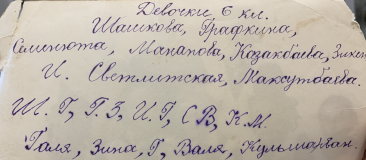 Девочки 6 кл.
Шашкова, Графкина,
Семенюта, Манапова, Казакбаева,
И. Светлитская, Максутбаева.
Ш. Г, Г. З, И. Г, С В, К. М.
Галя, Зина, Г, Валя, Кульмарган.